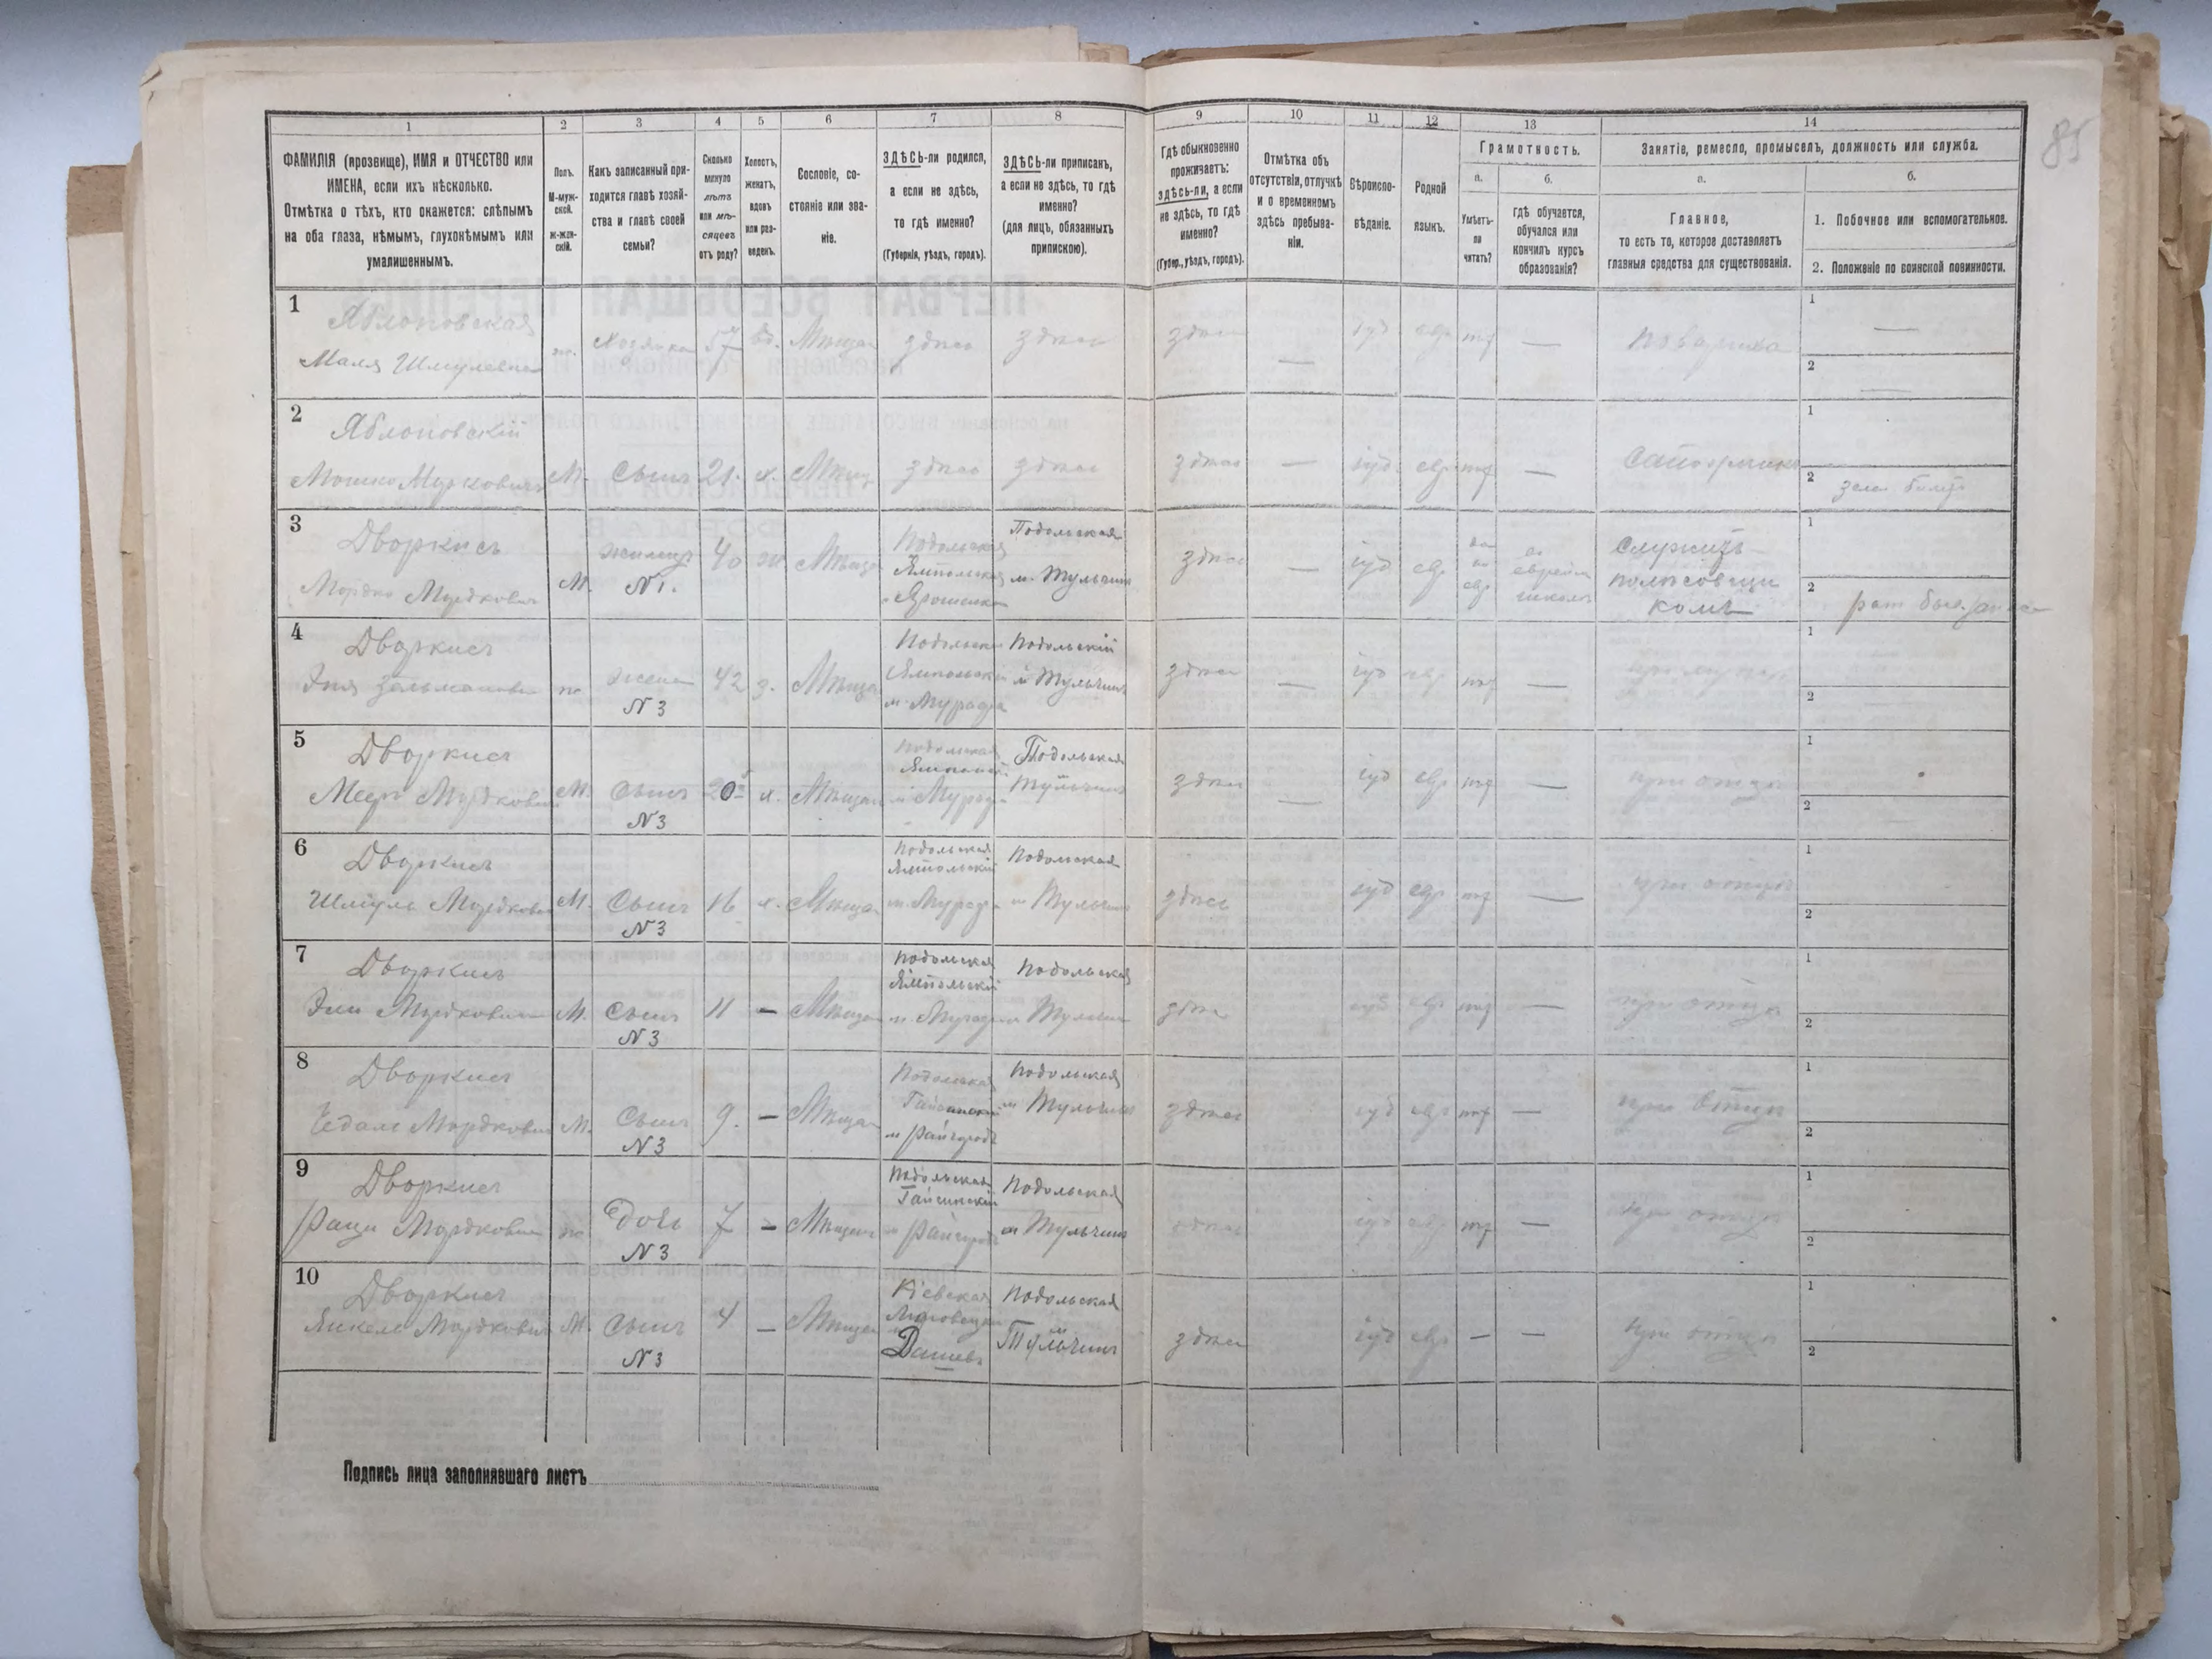 85
1 2 3 4 5 6 7 8 9 10 11 12 13 14
ФАМИЛІЯ (прозвище), ИМЯ и ОТЧЕСТВО или
ИМЕНА, если ихъ нѣсколько.
Отмѣтка о тѣхъ, кто окажется: слѣпымъ
на оба глаза, нѣмымъ, глухонѣмымъ или
умалишеннымъ.
Полъ.
М-муж-
ской.
ж-жен-
скій.
Какъ записанный при-
ходится главѣ хозяй-
ства и главѣ своей
семьи?
Сколько
минуло
лѣтъ
или мѣ-
сяцевъ
отъ роду?
Холостъ,
женатъ,
вдовъ
или раз-
веденъ.
Сословіе, со-
стояніе или зва-
ніе.
ЗДѢСЬ-ли родился,
а если не здѣсь,
то гдѣ именно?
(Губернія, уѣздъ, городъ).
ЗДѢСЬ-ли приписанъ,
а если не здѣсь, то гдѣ
именно?
(для лицъ, обязанныхъ
припискою).
Гдѣ обыкновенно
проживаетъ:
здѣсь-ли, а если
не здѣсь, то гдѣ
именно?
(Губер., уѣздъ, городъ).
Отмѣтка объ
отсутствіи, отлучкѣ
и о временномъ
здѣсь пребыва-
ніи.
Вѣроиспо-
вѣданіе.
Родной
языкъ.
Грамотность.
а.
Умѣетъ-
ли
читать?
б.
гдѣ обучается,
обучался или
кончилъ курсъ
образованія?
Занятіе, ремесло, промыселъ, должность или служба.
а.
Главное,
то есть то, которое доставляетъ
главныя средства для существованія.
б.
1. Побочное или вспомогательное.
2. Положеніе по воинской повинности.
1
Яблоновская
Маля Шмулевна
Хозяйка 57 вд. Мѣщан здѣсь здѣсь здѣсь іуд евр
1
2
2
Яблоновскій
Мошко Мордковичъ М. Сынъ 21. х. Мѣщ здѣсь здѣсь здѣсь іуд. евр
1
2
3
Дворкисъ
Мордко Мордкович М. жилец 40 ж Мѣщан
N 1.
Подольская
Ямпольскій
Подольская
м. Тульчин
здѣсь іуд евр
Служитъ
1
2
4
Дворкисъ
жена 42 з. Мѣщан
N 3
Подольская
м. Мурафа
Подольскій
м Тульчин
здѣсь іуд евр
1
2
5
Дворкис
Меер Мордкович М. Сынъ 20 х. Мѣщан
N 3
Подольская
м Мураф
Подольская
Тульчин
здѣсь іуд евр при отцѣ
1
2
6
Дворкисъ
Шмуль Мордкович М. Сынъ 16 х. Мѣщан
N 3
Подольская
Ямпольскій
м. Мураф
Подольская
м Тульчин
здѣсь іуд евр при отцѣ
1
2
7
Дворкисъ
Мордкович М. Сынъ 11 – Мѣщан
N 3
Подольская
Ямпольскій
м. Мураф
Подольская
м Тульчин
здѣсь іуд евр при отцѣ
1
2
8
Дворкис
Мордкович М. Сынъ 9. – Мѣщан
N 3
Подольская
Гайсинскій
м Райгородъ
Подольская
м Тульчин
здѣсь іуд евр при отцѣ
1
2
9
Дворкис
Мордкович дочь 7 – Мѣщан
N 3
Подольская
Гайсинскій
м Райгородъ
Подольская
м Тульчин
здѣсь іуд евр при отцѣ
1
2
10
Дворкис
Янкель Мордкович М. Сынъ 4 – Мѣщан
N 3
Кіевская
Липовецкій
Дашевъ
Подольская
м Тульчин
здѣсь іуд евр – – при отцѣ
1
2
Подпись лица заполнявшаго листъ